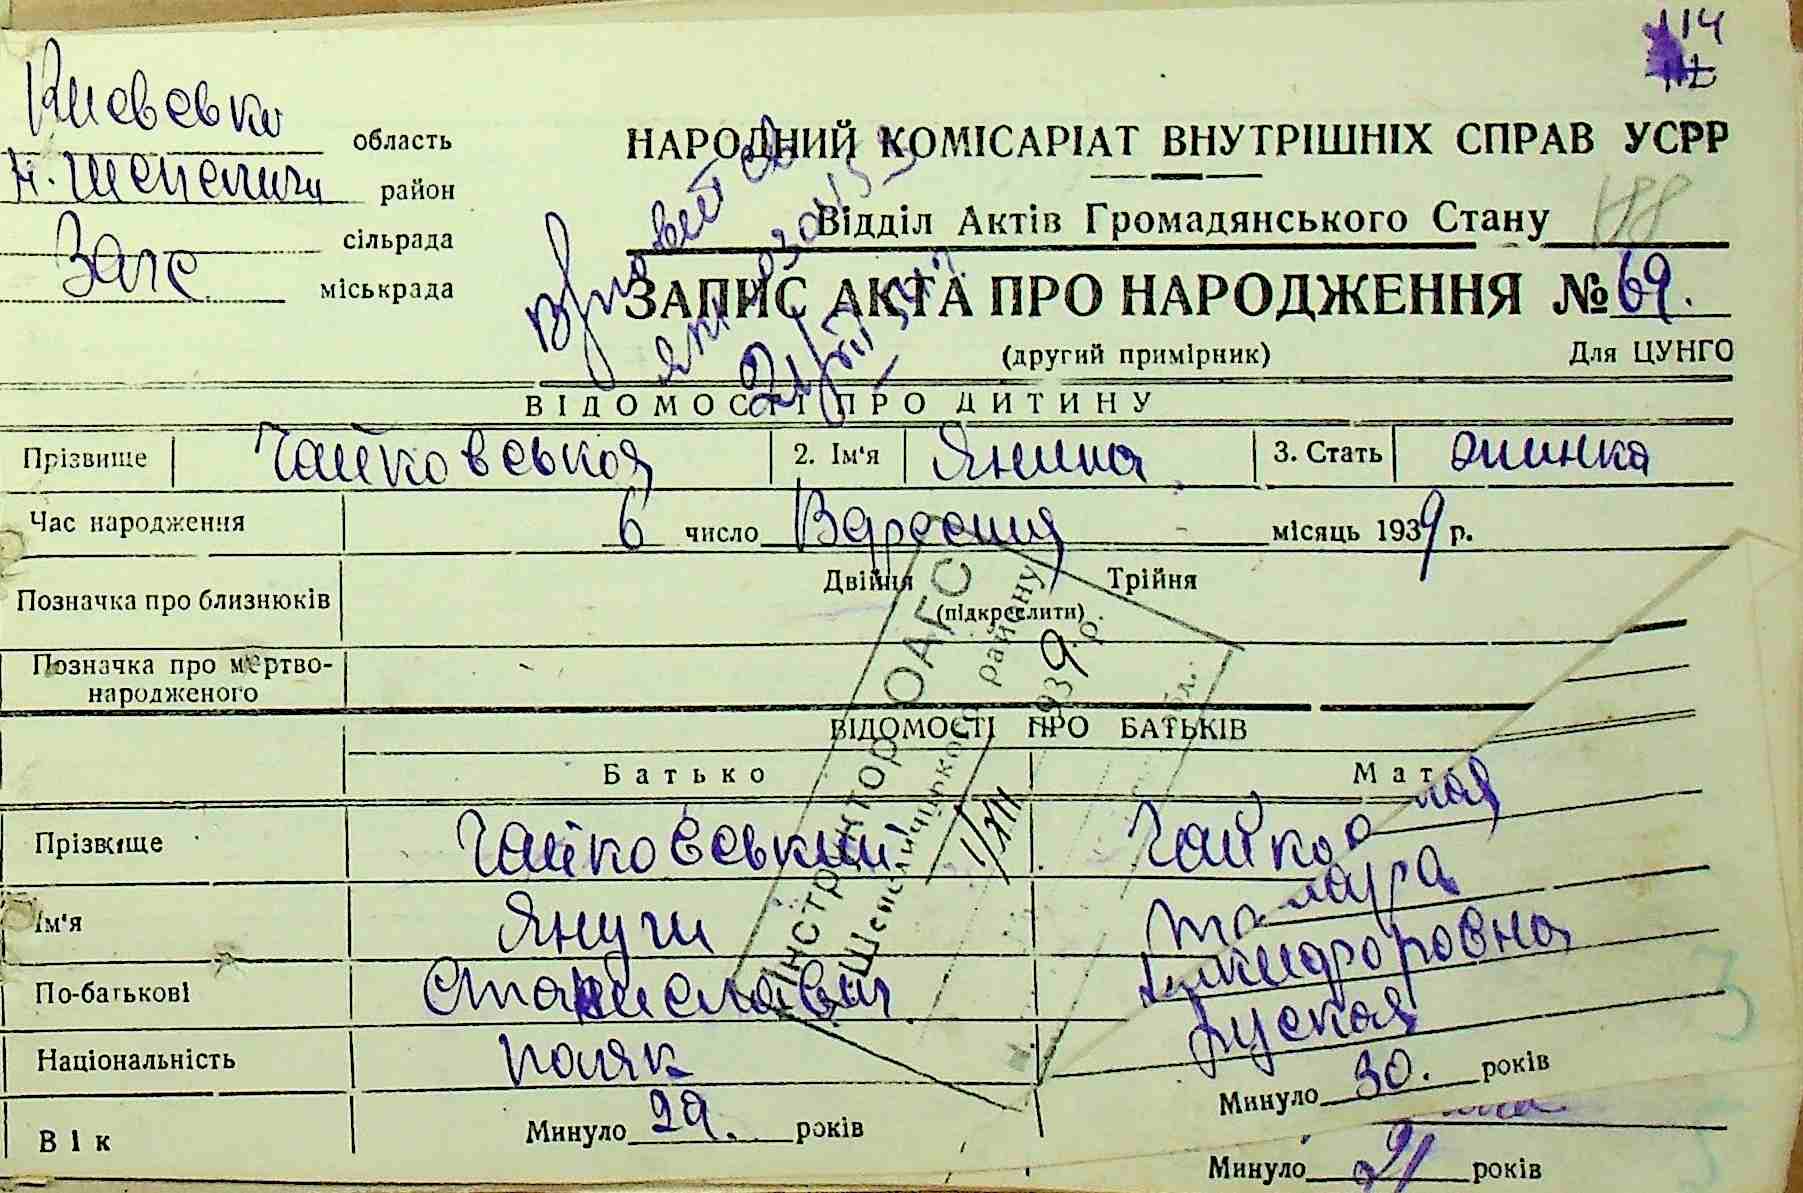 114
Киевська область
Н. Шепеличи район
сільрада
Загс міськрада
НАРОДНИЙ КОМІСАРІАТ ВНУТРІШНІХ СПРАВ УСРР
Відділ Актів Громадянського Стану 188
ЗАПИС АКТА ПРО НАРОДЖЕННЯ № 69.
(другий примірник) Для ЦУНГО
ВІДОМОСТІ ПРО ДИТИНУ
Прізвище Чайковськая 2. Ім'я Янина 3. Стать жинка
Час народження 6 число Вересния місяць 1939 р.
Позначка про близнюків Двійня Трійня
(підкреслити)
Позначка про мертво-
народженого
ВІДОМОСТІ ПРО БАТЬКІВ
Батько Мат
Прізвище Чайковський Чайко ная
Ім'я Януш
По-батькові Станиславич
Національність поляк Руская
Вік Минуло 29. років Минуло 30. років
Минуло років
Інструктор ОАГС
Шепеличицького району
1/XII 1939 р.
обл.